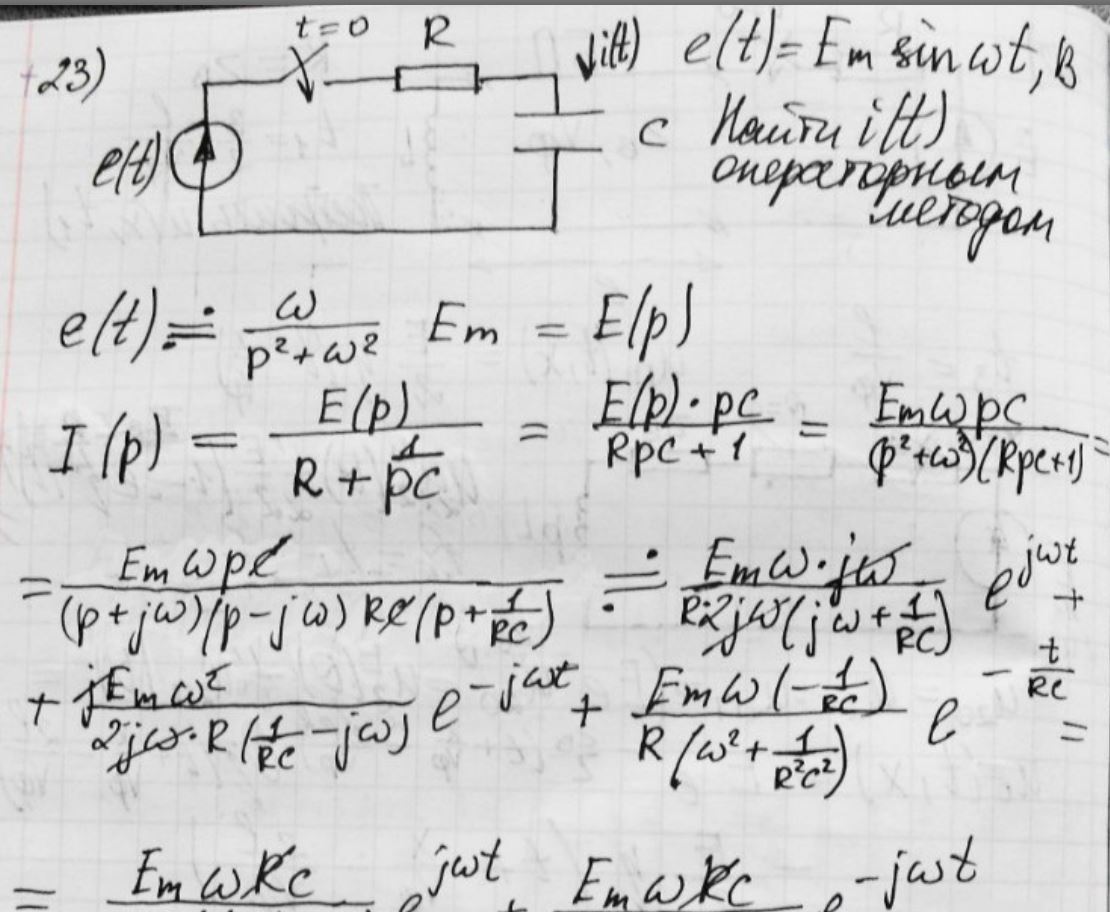 +23) t=0 R i(t) e(t) = Em sin ωt, В
e(t) C Найти i(t)
операторным
методом
e(t) ≓ ω/(p² + ω²) Em = E(p)
I(p) = E(p)/(R + 1/pC) = E(p)·pC/(RpC + 1) = EmωpC/((p²+ω²)(RpC+1)) =
= EmωpC/((p+jω)(p-jω)RC(p+1/RC)) ≓ Emω·jω/(R2jω(jω+1/RC)) e^(jωt) +
+ jEmω²/(2jω·R(1/RC - jω)) e^(-jωt) + Emω(-1/RC)/(R(ω²+1/(R²C²))) e^(-t/RC) =
= EmωRC e^(jωt) + EmωRC e^(-jωt)